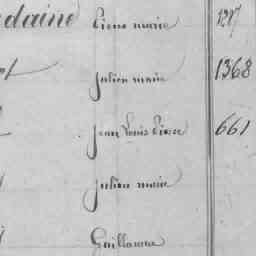 daine Pierre marie 1217
Julien marie 1368
Jean Louis Pierre 661
Julien marie
Guillaume